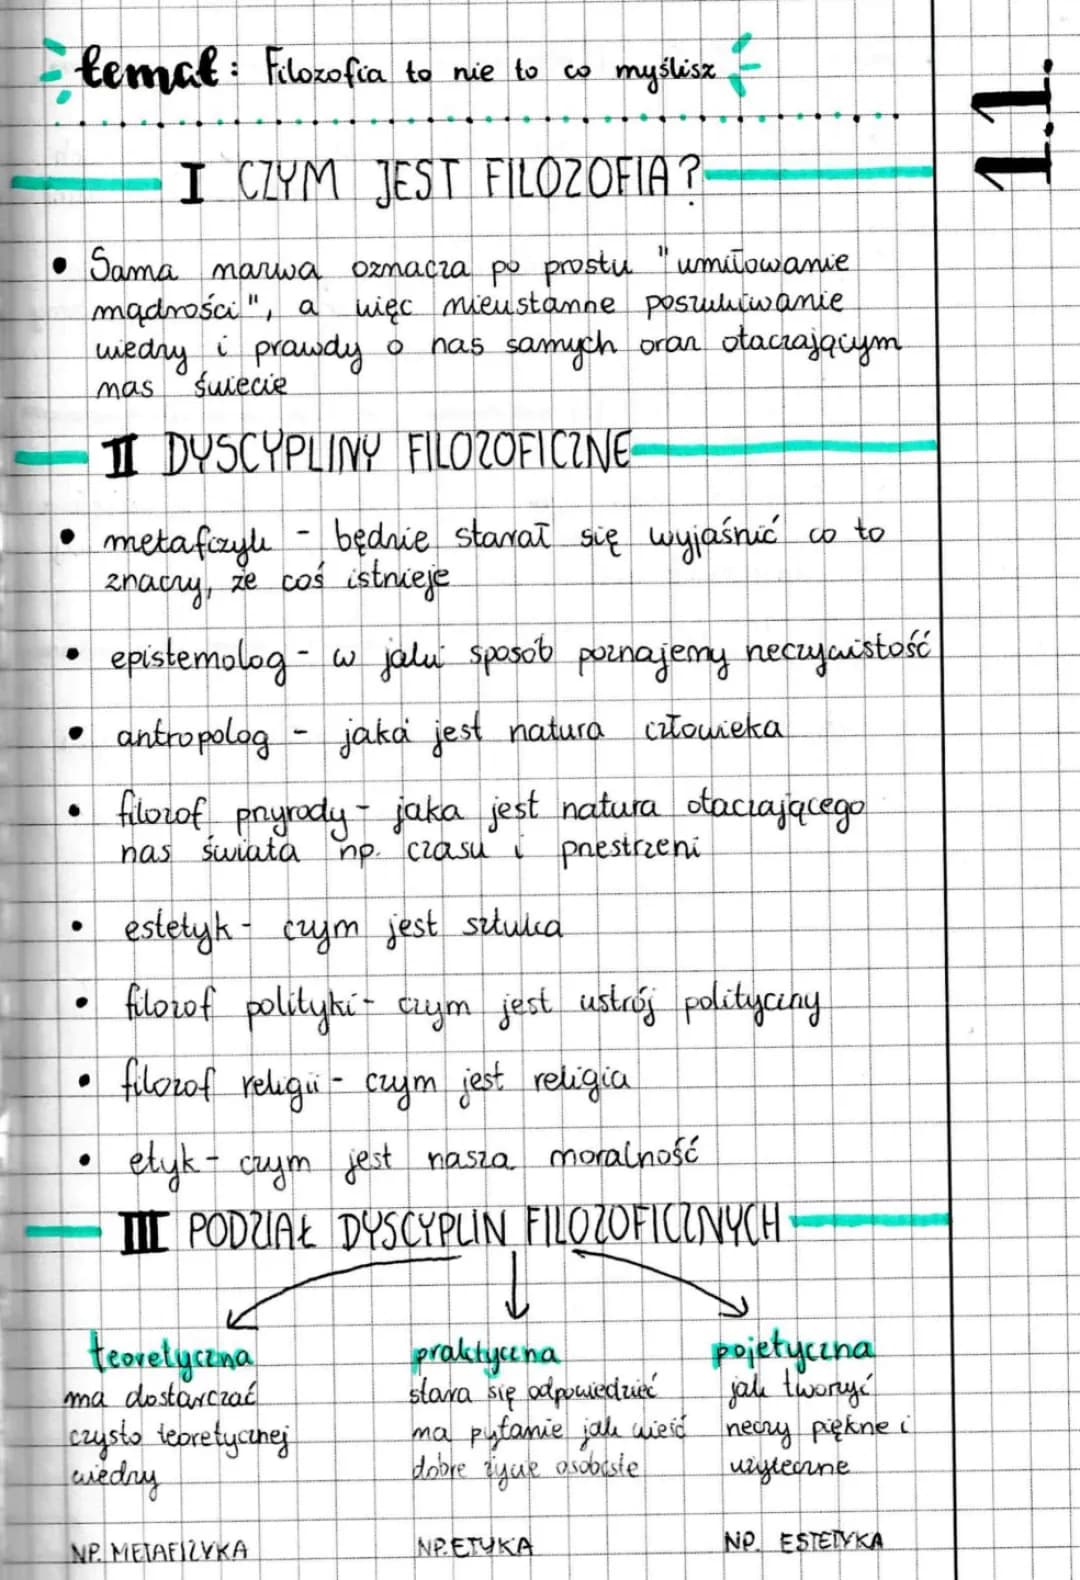 temat: Filozofia to nie to co myślisz
1.1.
I CZYM JEST FILOZOFIA?
• Sama nazwa oznacza po prostu "umiłowanie
mądrości", a więc nieustanne poszukiwanie
wiedzy i prawdy o nas samych oraz otaczającym
nas świecie
II DYSCYPLINY FILOZOFICZNE
• metafizyk - będzie starał się wyjaśnić co to
znaczy, że coś istnieje
• epistemolog - w jaki sposób poznajemy rzeczywistość
• antropolog - jaka jest natura człowieka
• filozof przyrody - jaka jest natura otaczającego
nas świata np. czasu i przestrzeni
• estetyk - czym jest sztuka
• filozof polityki - czym jest ustrój polityczny
• filozof religii - czym jest religia
• etyk - czym jest nasza moralność
III PODZIAŁ DYSCYPLIN FILOZOFICZNYCH
teoretyczna
ma dostarczać
czysto teoretycznej
wiedzy
NP. METAFIZYKA
praktyczna
stara się odpowiedzieć
na pytanie jak wieść
dobre życie osobiste
NP. ETYKA
pojetyczna
jak tworzyć
rzeczy piękne i
użyteczne
NP. ESTETYKA